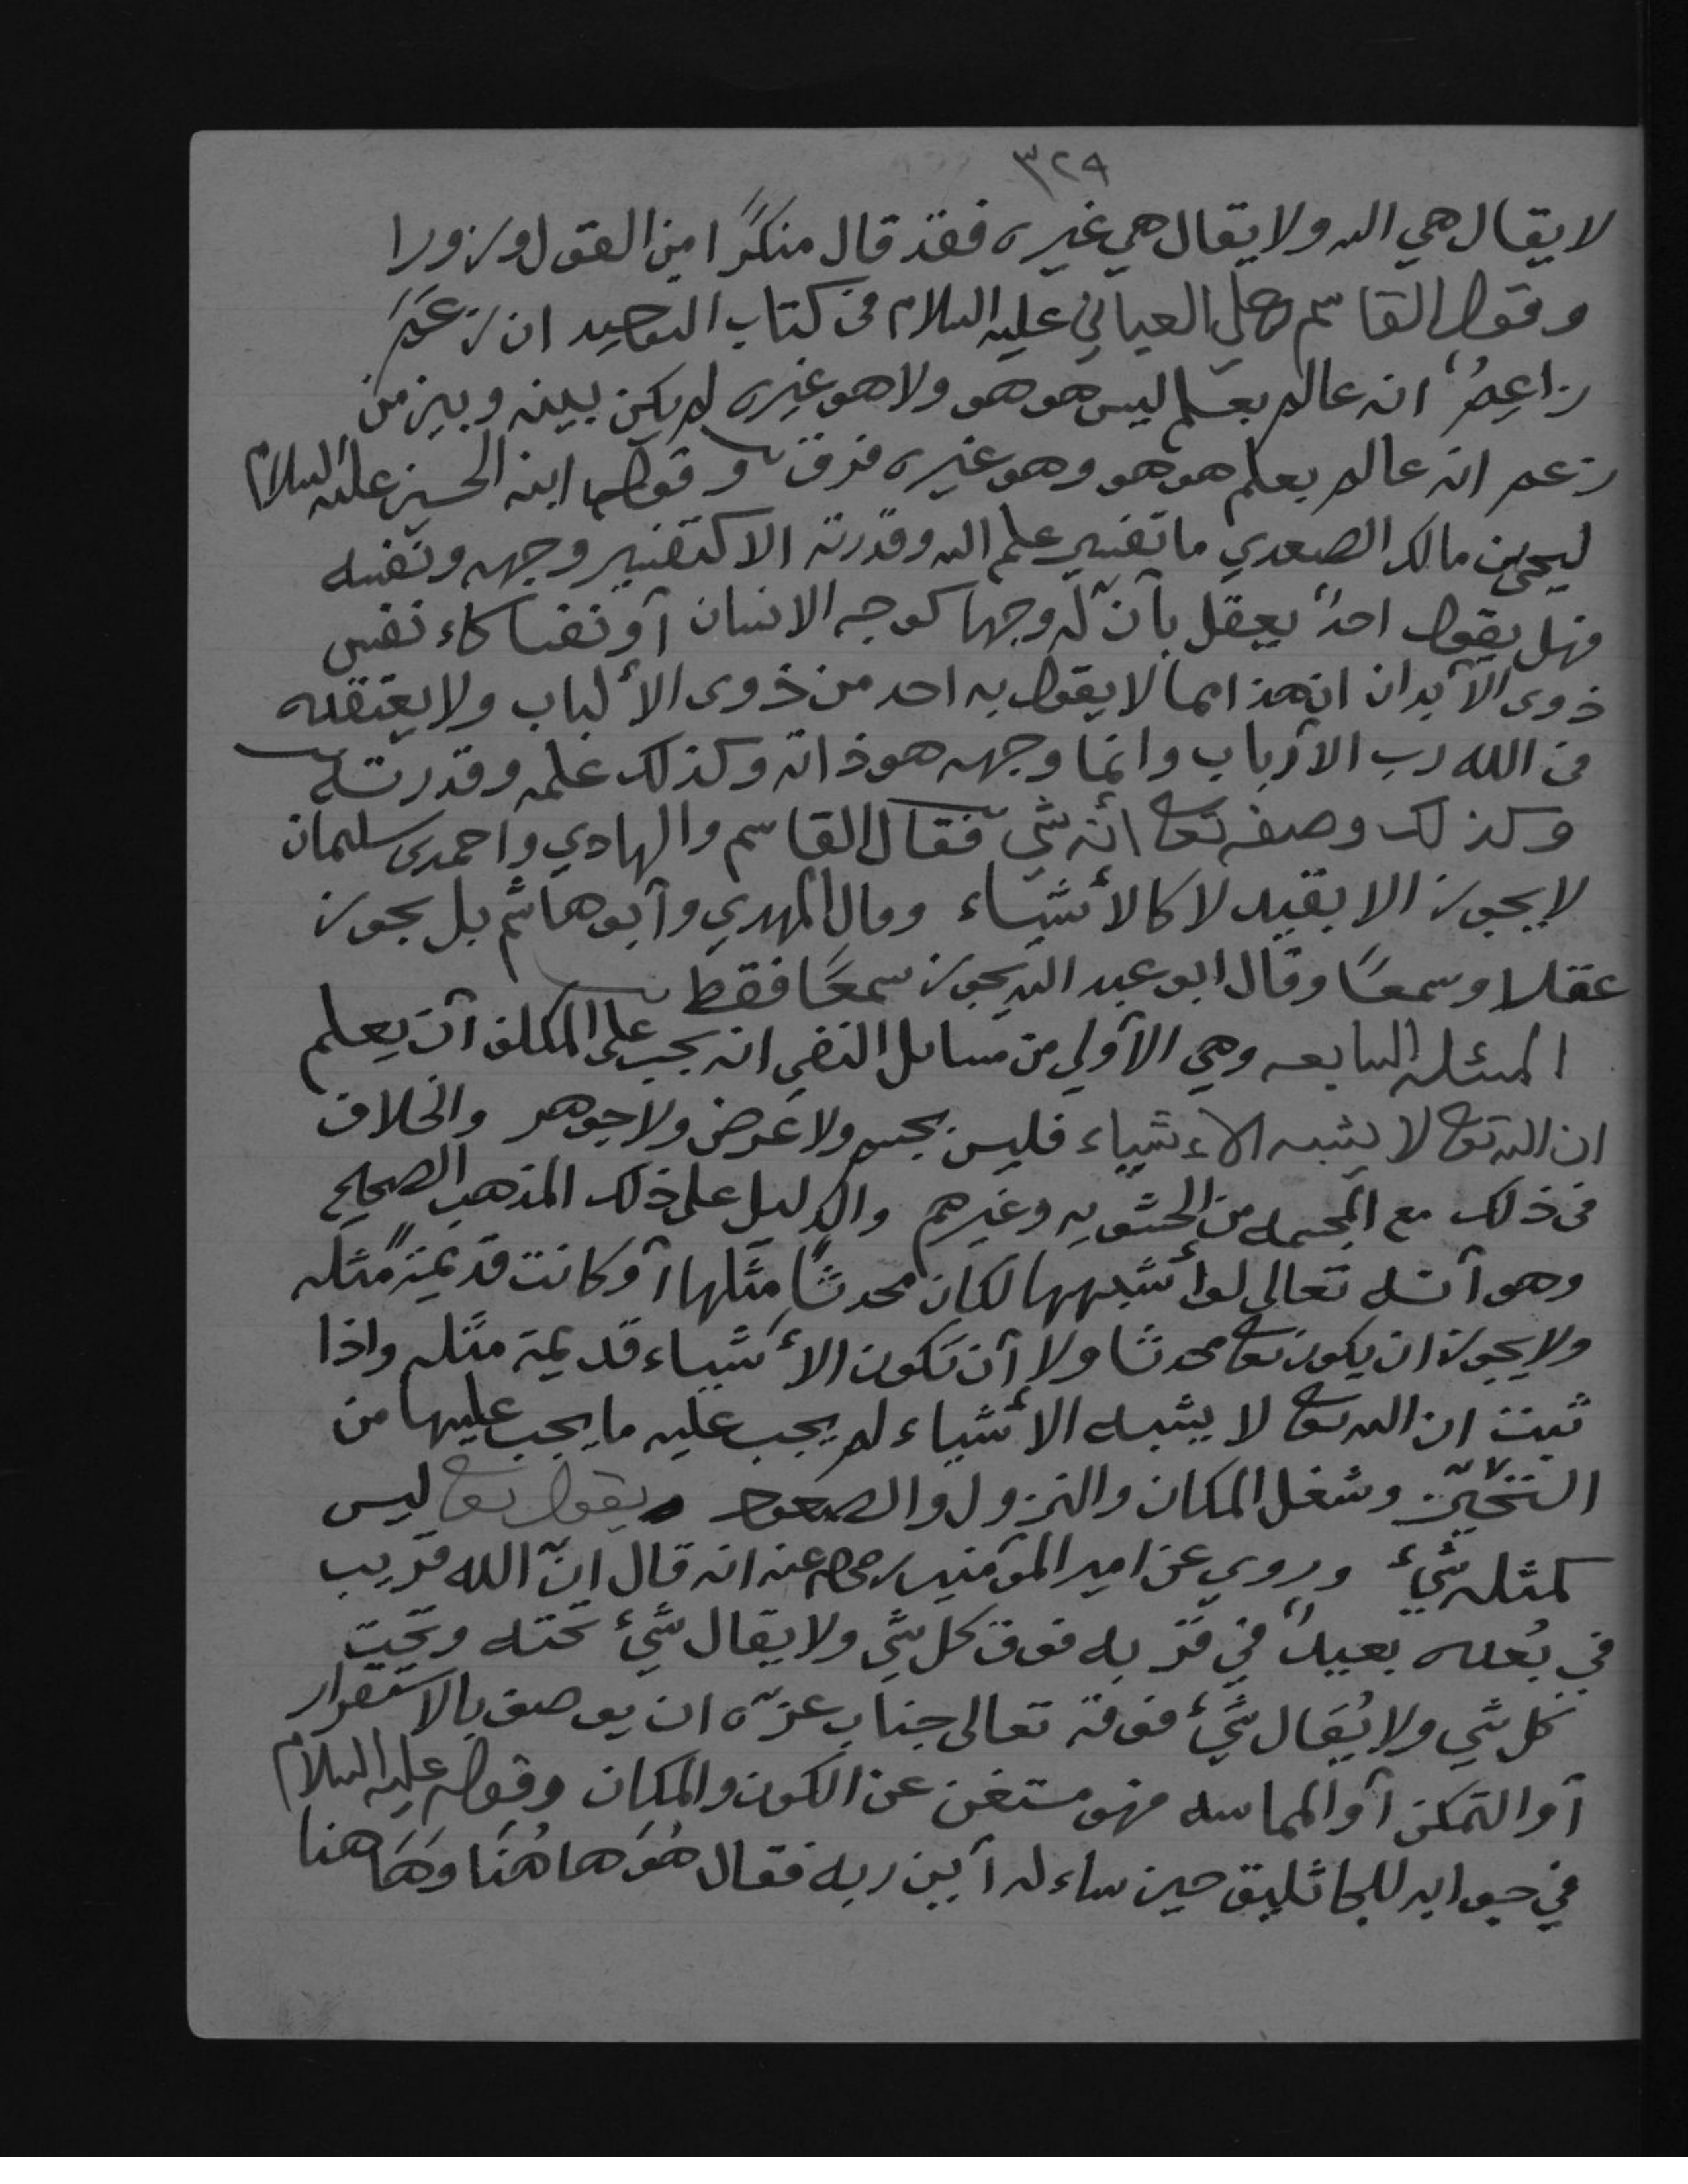 ٣٢٩
لا يقال هي الله ولا يقال هي غيره فقد قال منكرًا من القول وزورا
وقول القاسم بن علي العياني عليه السلام في كتاب التوحيد ان زعم
زاعمٌ انه عالم بعلم ليس هو هو ولا هو غيره لم يكن بينه وبين من
زعم انه عالم بعلم هو هو وهو غيره فرق وقول ابنه الحسين عليه السلام
ليحيى بن مالك الصعدي ما تفسير علم الله وقدرته الا كتفسير وجهه ونفسه
فهل يقول احدٌ يعقل بأنّ له وجها كوجه الانسان آو نفسا كاء نفس
ذوى الآبدان ان هذا مما لا يقول به احد من ذوى الألباب ولا يعتقده
في الله رب الآرباب وانما وجهه هو ذاته وكذلك علمه وقدرته
وكذلك وصفه تعا انّه شيء فقال القاسم والهادي وآحمد بن سليمان
لا يجوز الا بقيد لا كالأشياء وقال المهدي وآبو هاشم بل يجوز
عقلا وسمعًا وقال ابو عبد الله يجوز سمعًا فقط
المسئله السابعه وهي الآولي من مسائل النفي انه يجب على المكلف آن يعلم
ان الله تعا لا يشبه الاءشياء فليس بجسم ولا عَرض ولا جوهر والخلاف
في ذلك مع المجسمه من الحشويه وغيرهم والدليل على ذلك المذهب الصحيح
وهو آنه تعالى لو أشبهها لكان محدثًا مثلها آو كانت قديمةً مثله
ولا يجوز ان يكون تعا محدثا ولا آن تكون الأشياء قديمة مثله واذا
ثبت ان الله تعا لا يشبه الأشياء لم يجب عليه ما يجب عليها من
التحيّز وشغل المكان والنزول والصعود ويقول تعا ليس
كمثله شيءٌ وروي عن امير المؤمنين رضي الله عنه انه قال انّ الله قريب
في بُعده بعيدٌ في قربه فوق كل شي ولا يقال شيءٌ تحته وتحت
كل شي ولا يُقال شيءٌ فوقه تعالى جناب عزّه ان يوصف بالاستقرار
آو التمكن آو المماسه فهو مستغن عن الكون والمكان وقوله عليه السلام
في جوابه للجاثليق حين ساءله آين ربه فقال هُوَ هاهُنَا وَهَاهنا